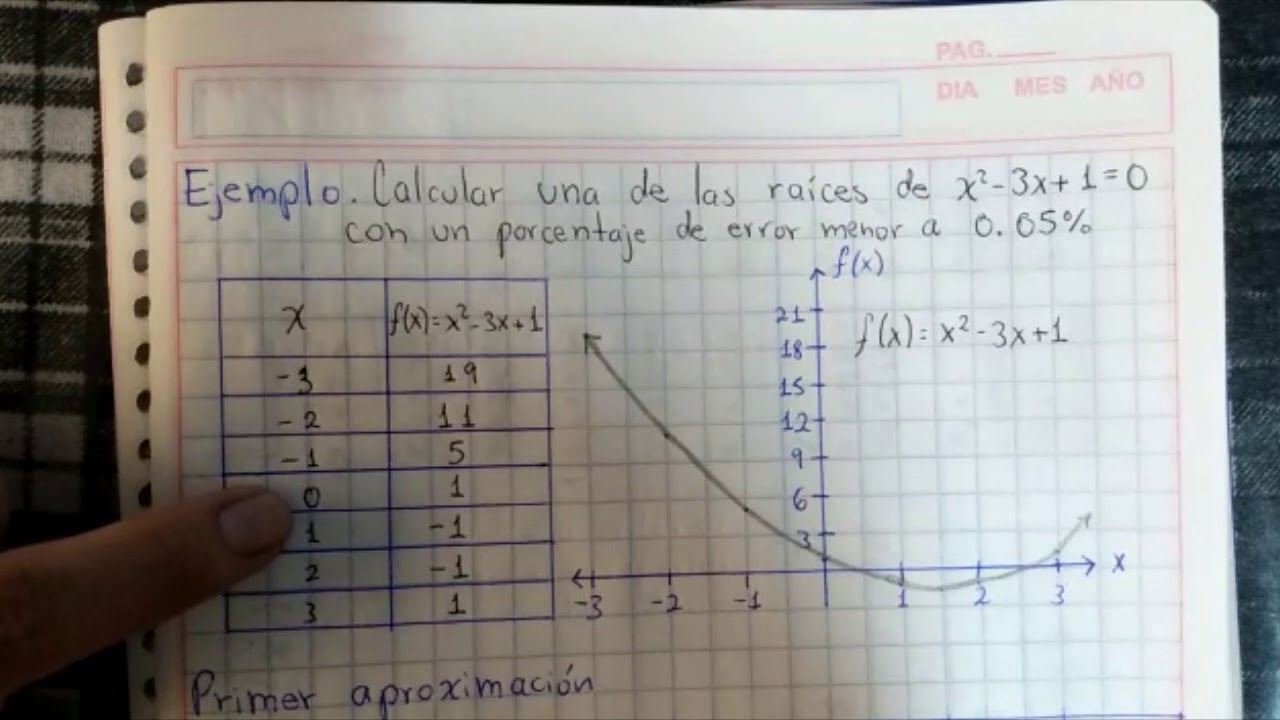 PAG.
DIA MES AÑO
Ejemplo. Calcular una de las raíces de x²-3x+1=0
con un porcentaje de error menor a 0.05%
x f(x)=x²-3x+1
-3 19
-2 11
-1 5
0 1
1 -1
2 -1
3 1
f(x)
21
18
15
12
9
6
3
f(x)=x²-3x+1
-3 -2 -1 1 2 3 x
Primer aproximación